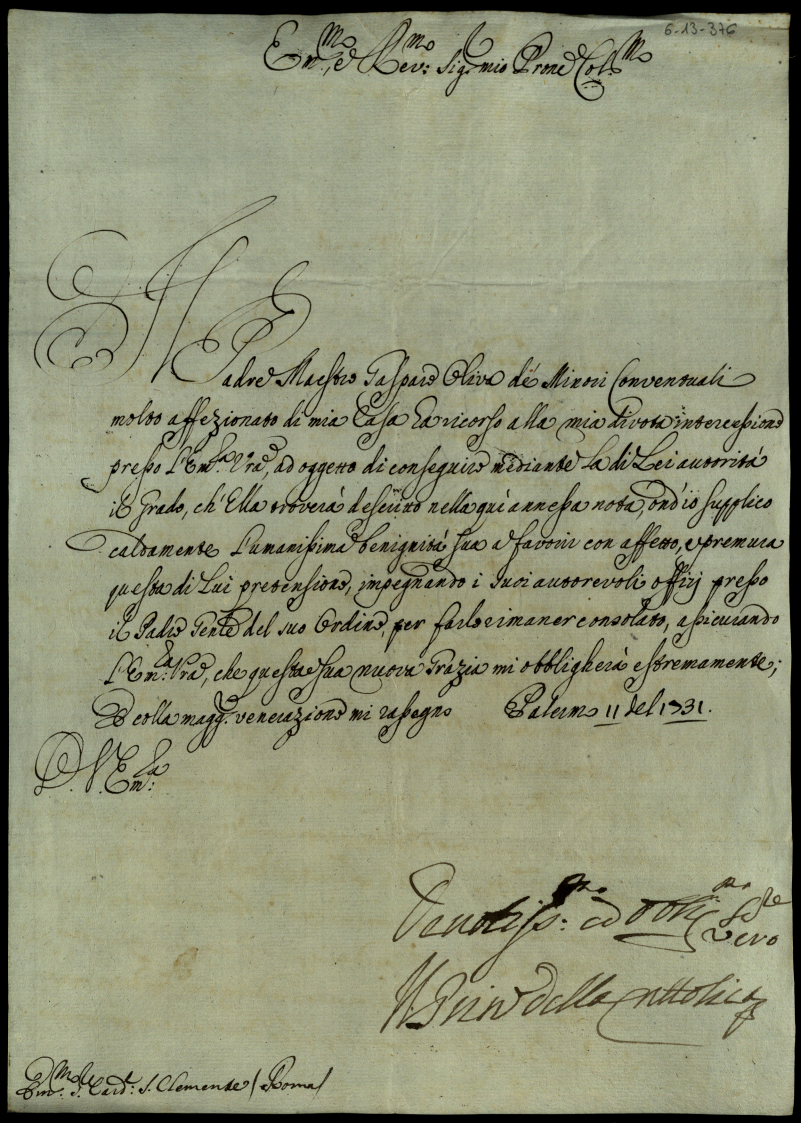 6-13-376
Em.mo, e Rev.mo Sig.r mio Prone Col.mo
Il Padre Maestro Gaspare Oliva de' Minori Conventuali
molto affezionato di mia Casa hà ricorso alla mia divota intercessione
presso l'Em.za V'ra, ad oggetto di conseguire mediante la di Lei autorità
il Grado, ch'Ella troverà descritto nella quì annessa nota, ond'io supplico
caldamente l'umanissima benignità sua a favorir con affetto, e premura
questa di Lui pretensione, impegnando i suoi autorevoli offizij presso
il Padre Gen.le del suo Ordine, per farlo rimaner consolato, assicurando
l'Em.za V'ra, che questa sua nuova Grazia mi obbligherà estremamente;
E colla magg.r venerazione mi rassegno Palermo 11 del 1731.
D. V. Em.za
Devotiss.mo ed Obb.mo S.re vero
Il Prin.e della Cattolica
Em.mo S. Card.le S. Clemente / Roma /